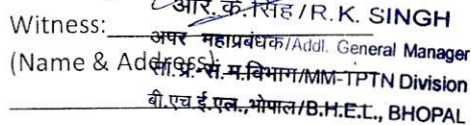 आर. के. सिंह / R.K. SINGH
Witness:
अपर महाप्रबंधक/Addl. General Manager
(Name & Address):
सा.प्र.-सं.म.विभाग/MM-TPTN Division
बी.एच.ई.एल.,भोपाल/B.H.E.L., BHOPAL